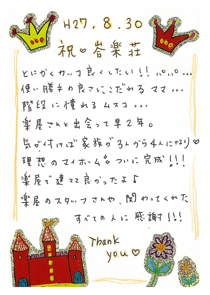 H27.8.30
祝♡峇楽荘
とにかくカッコ良くしたい!!パパ...
使い勝手の良さにこだわるママ...
階段に憧れるムスコ...
楽屋さんと出会って早2年。
気が付けば家族が3人から4人になり♡
理想のマイホームがついに完成!!!
楽屋で建てて良かったよ♪
楽屋のスタッフさんや、関わってくれた
すべての人に感謝!!!
Thank
you♡